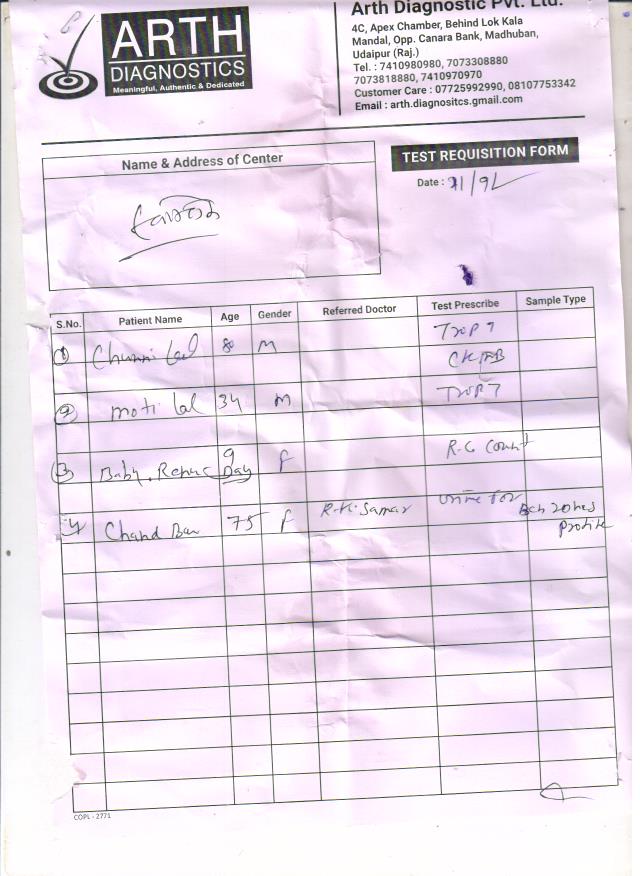 ARTH
DIAGNOSTICS
Meaningful, Authentic & Dedicated
Arth Diagnostic Pvt. Ltd.
4C, Apex Chamber, Behind Lok Kala
Mandal, Opp. Canara Bank, Madhuban,
Udaipur (Raj.)
Tel. : 7410980980, 7073308880
7073818880, 7410970970
Customer Care : 07725992990, 08107753342
Email : arth.diagnositcs.gmail.com
Name & Address of Center
TEST REQUISITION FORM
Date :
S.No. Patient Name Age Gender Referred Doctor Test Prescribe Sample Type
1 Chunni Lal 80 M Trop T
2 moti lal 34 m Trop T
3 Baby. 9 Day F Count
4 Chand 75 F R.K. Samar urine for
Profile
COPL - 2771